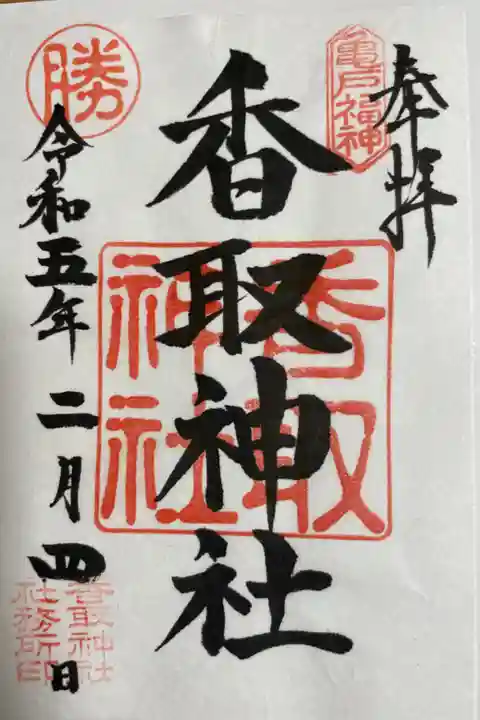 奉拝
亀戸福神
香取神社
香取
神社
勝
令和五年二月四日
香取神社
社務所印